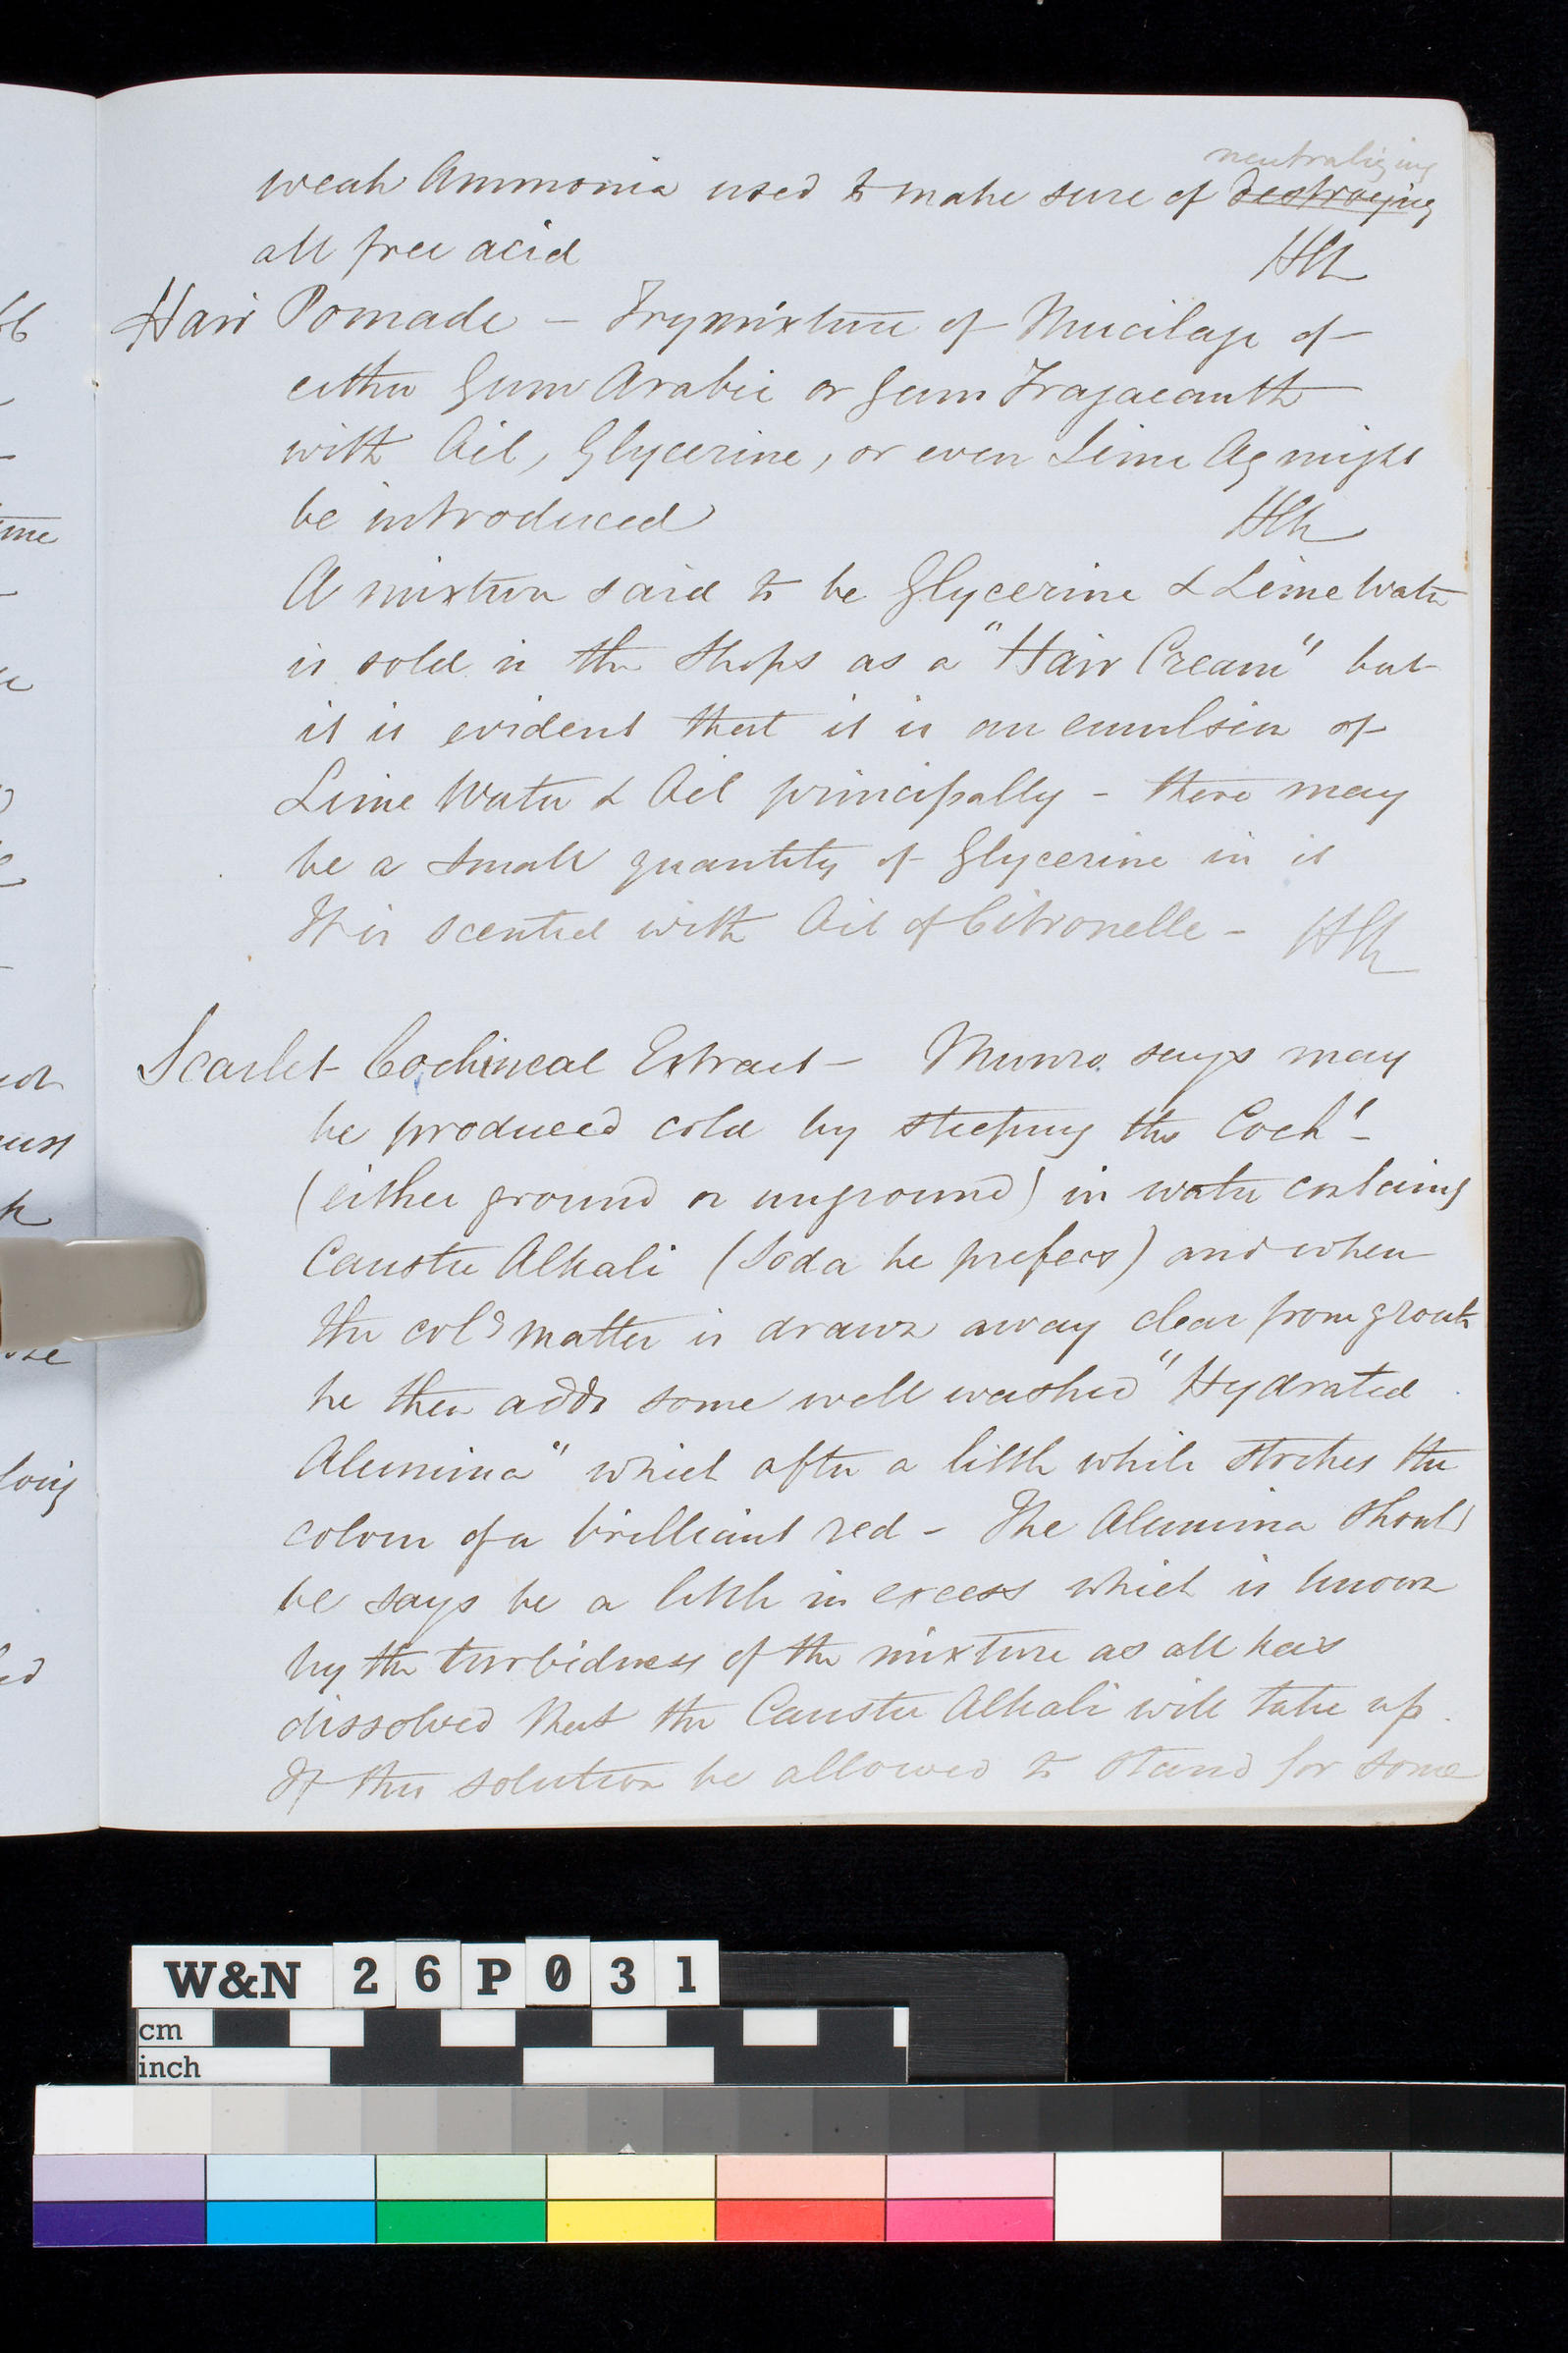 neutralizing
weak Ammonia used to make sure of destroying
all free acid HCh
Hair Pomade - Try mixture of Mucilage of
either Gum Arabic or Gum Tragacanth
with Oil, Glycerine, or even Lime Aq might
be introduced HCh
A mixture said to be Glycerine & Lime Water
is sold in the shops as a "Hair Cream" but
it is evident that it is an emulsion of
Lime Water & Oil principally - there may
be a small quantity of Glycerine in it
It is scented with Oil of Citronelle - HCh
Scarlet Cochineal Extract - Munro. says may
be produced cold by steeping the Coch'l
(either ground or unground) in water containing
Caustic Alkali (Soda he prefers) and when
the col'g matter is drawn away clear from grouts
he then adds some well washed "Hydrated
Alumina" which after a little while strikes the
colour of a brilliant red - The Alumina should
be says be a little in excess which is known
by the turbidness of the mixture as all has
dissolved that the Caustic Alkali will take up.
If this solution be allowed to stand for some
W&N 26P031
cm
inch